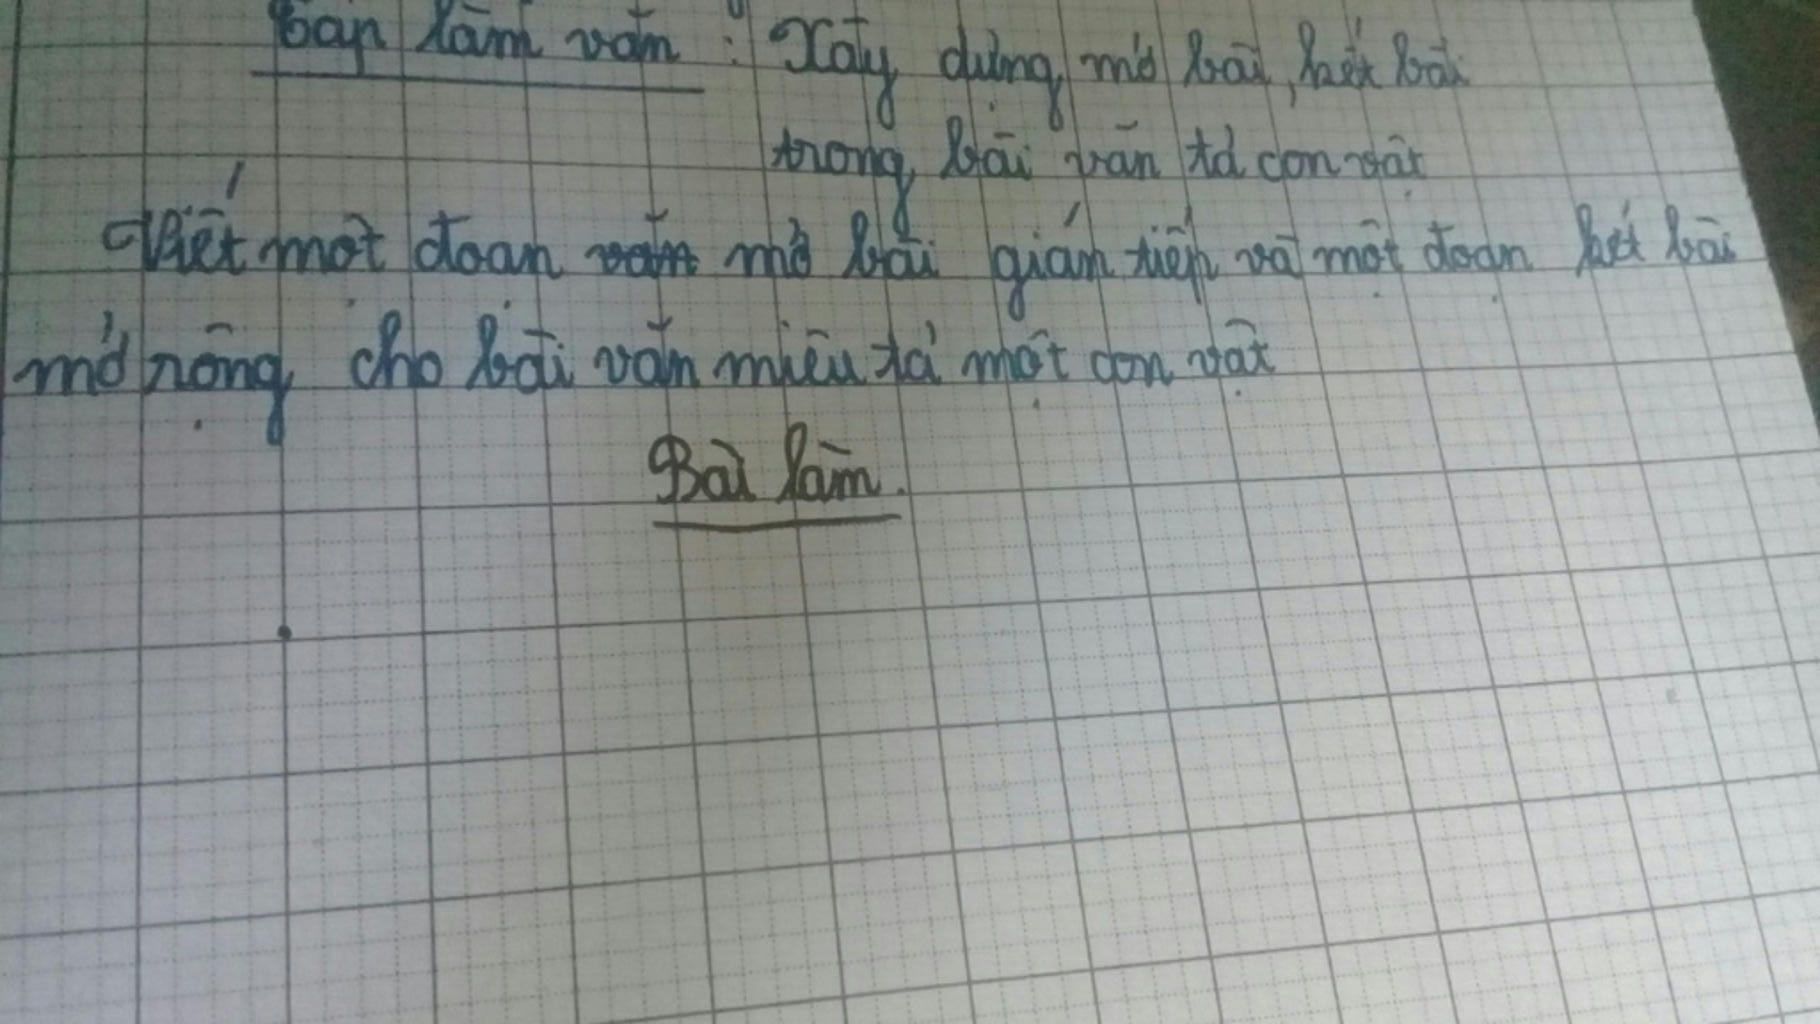 Tập làm văn : Xây dựng mở bài, kết bài
trong bài văn tả con vật
Viết một đoạn văn mở bài gián tiếp và một đoạn kết bài
mở rộng cho bài văn miêu tả một con vật
Bài làm.